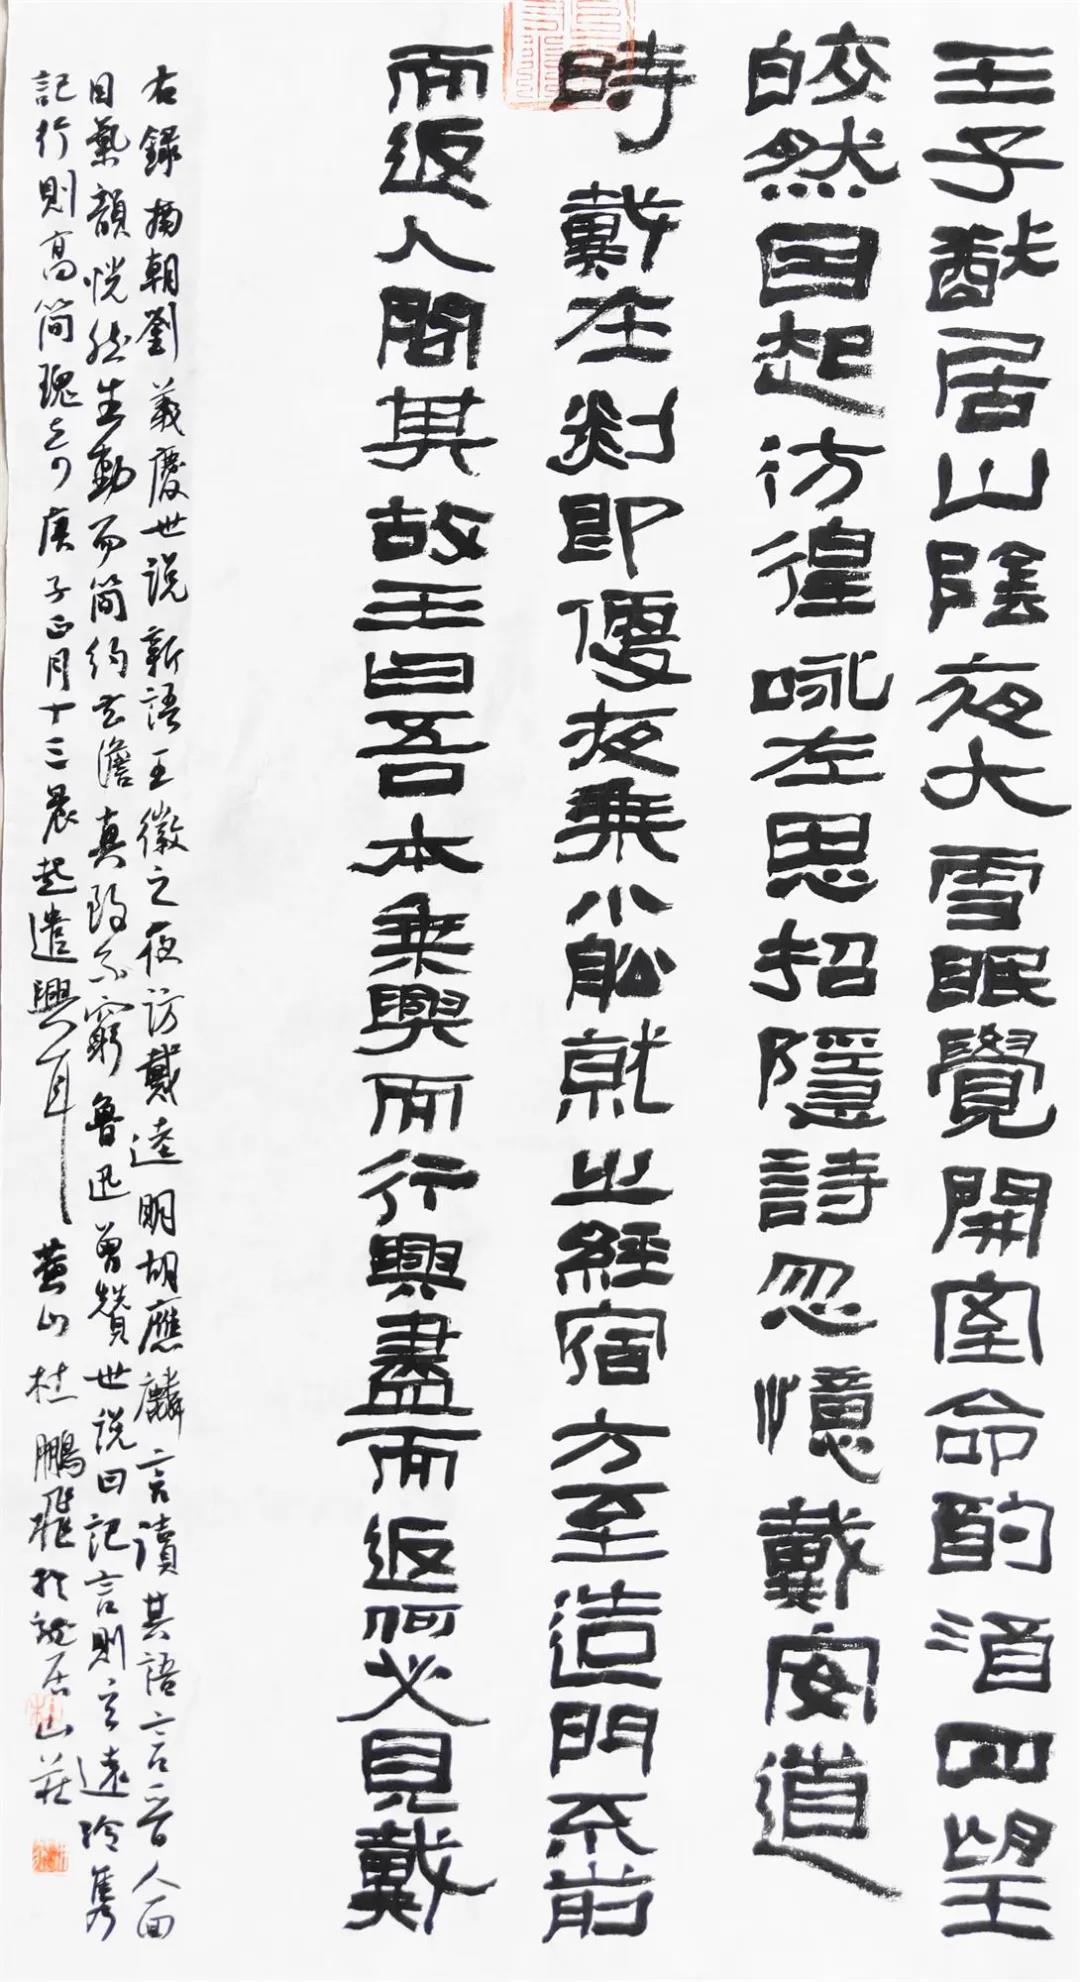 王子猷居山陰夜大雪眠覺開室命酌酒四望
皎然因起彷徨咏左思招隱詩忽憶戴安道
時戴在剡即便夜乗小船就之經宿方至造門不前
而返人問其故王曰吾本乗興而行興盡而返何必見戴
右錄南朝劉義慶世説新語王徽之夜訪戴逵明胡應麟言讀其語言晋人面
目氣韻恍然生動而簡約玄澹真致不窮魯迅曾贊世説曰記言則玄遠冷雋
記行則高簡瑰奇庚子正月十三晨起遣興耳黄山杜鵬飛於居山莊